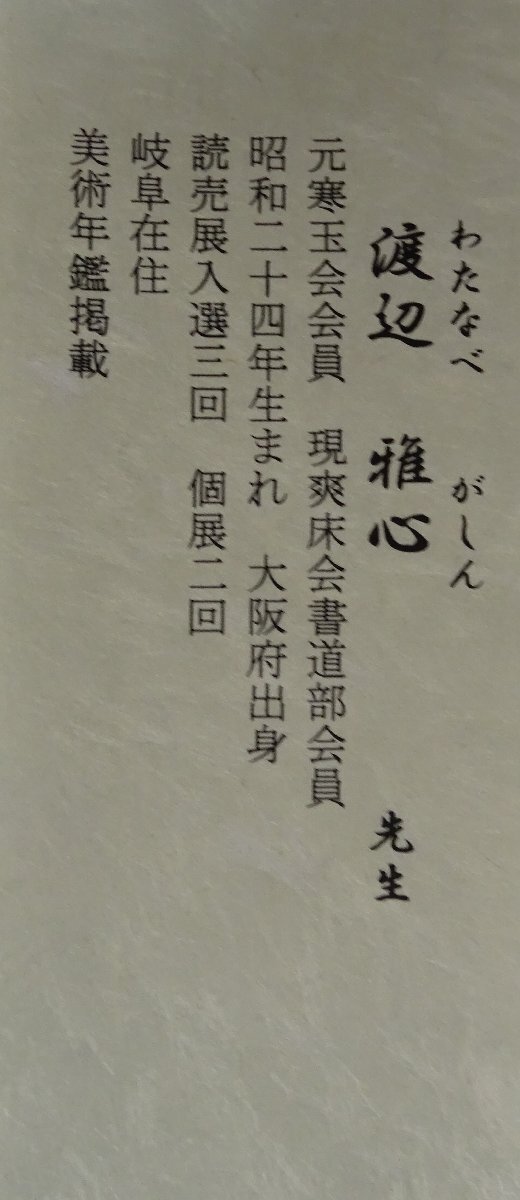 わたなべ がしん
渡辺 雅心 先生
元寒玉会会員 現爽床会書道部会員
昭和二十四年生まれ 大阪府出身
読売展入選三回 個展二回
岐阜在住
美術年鑑掲載